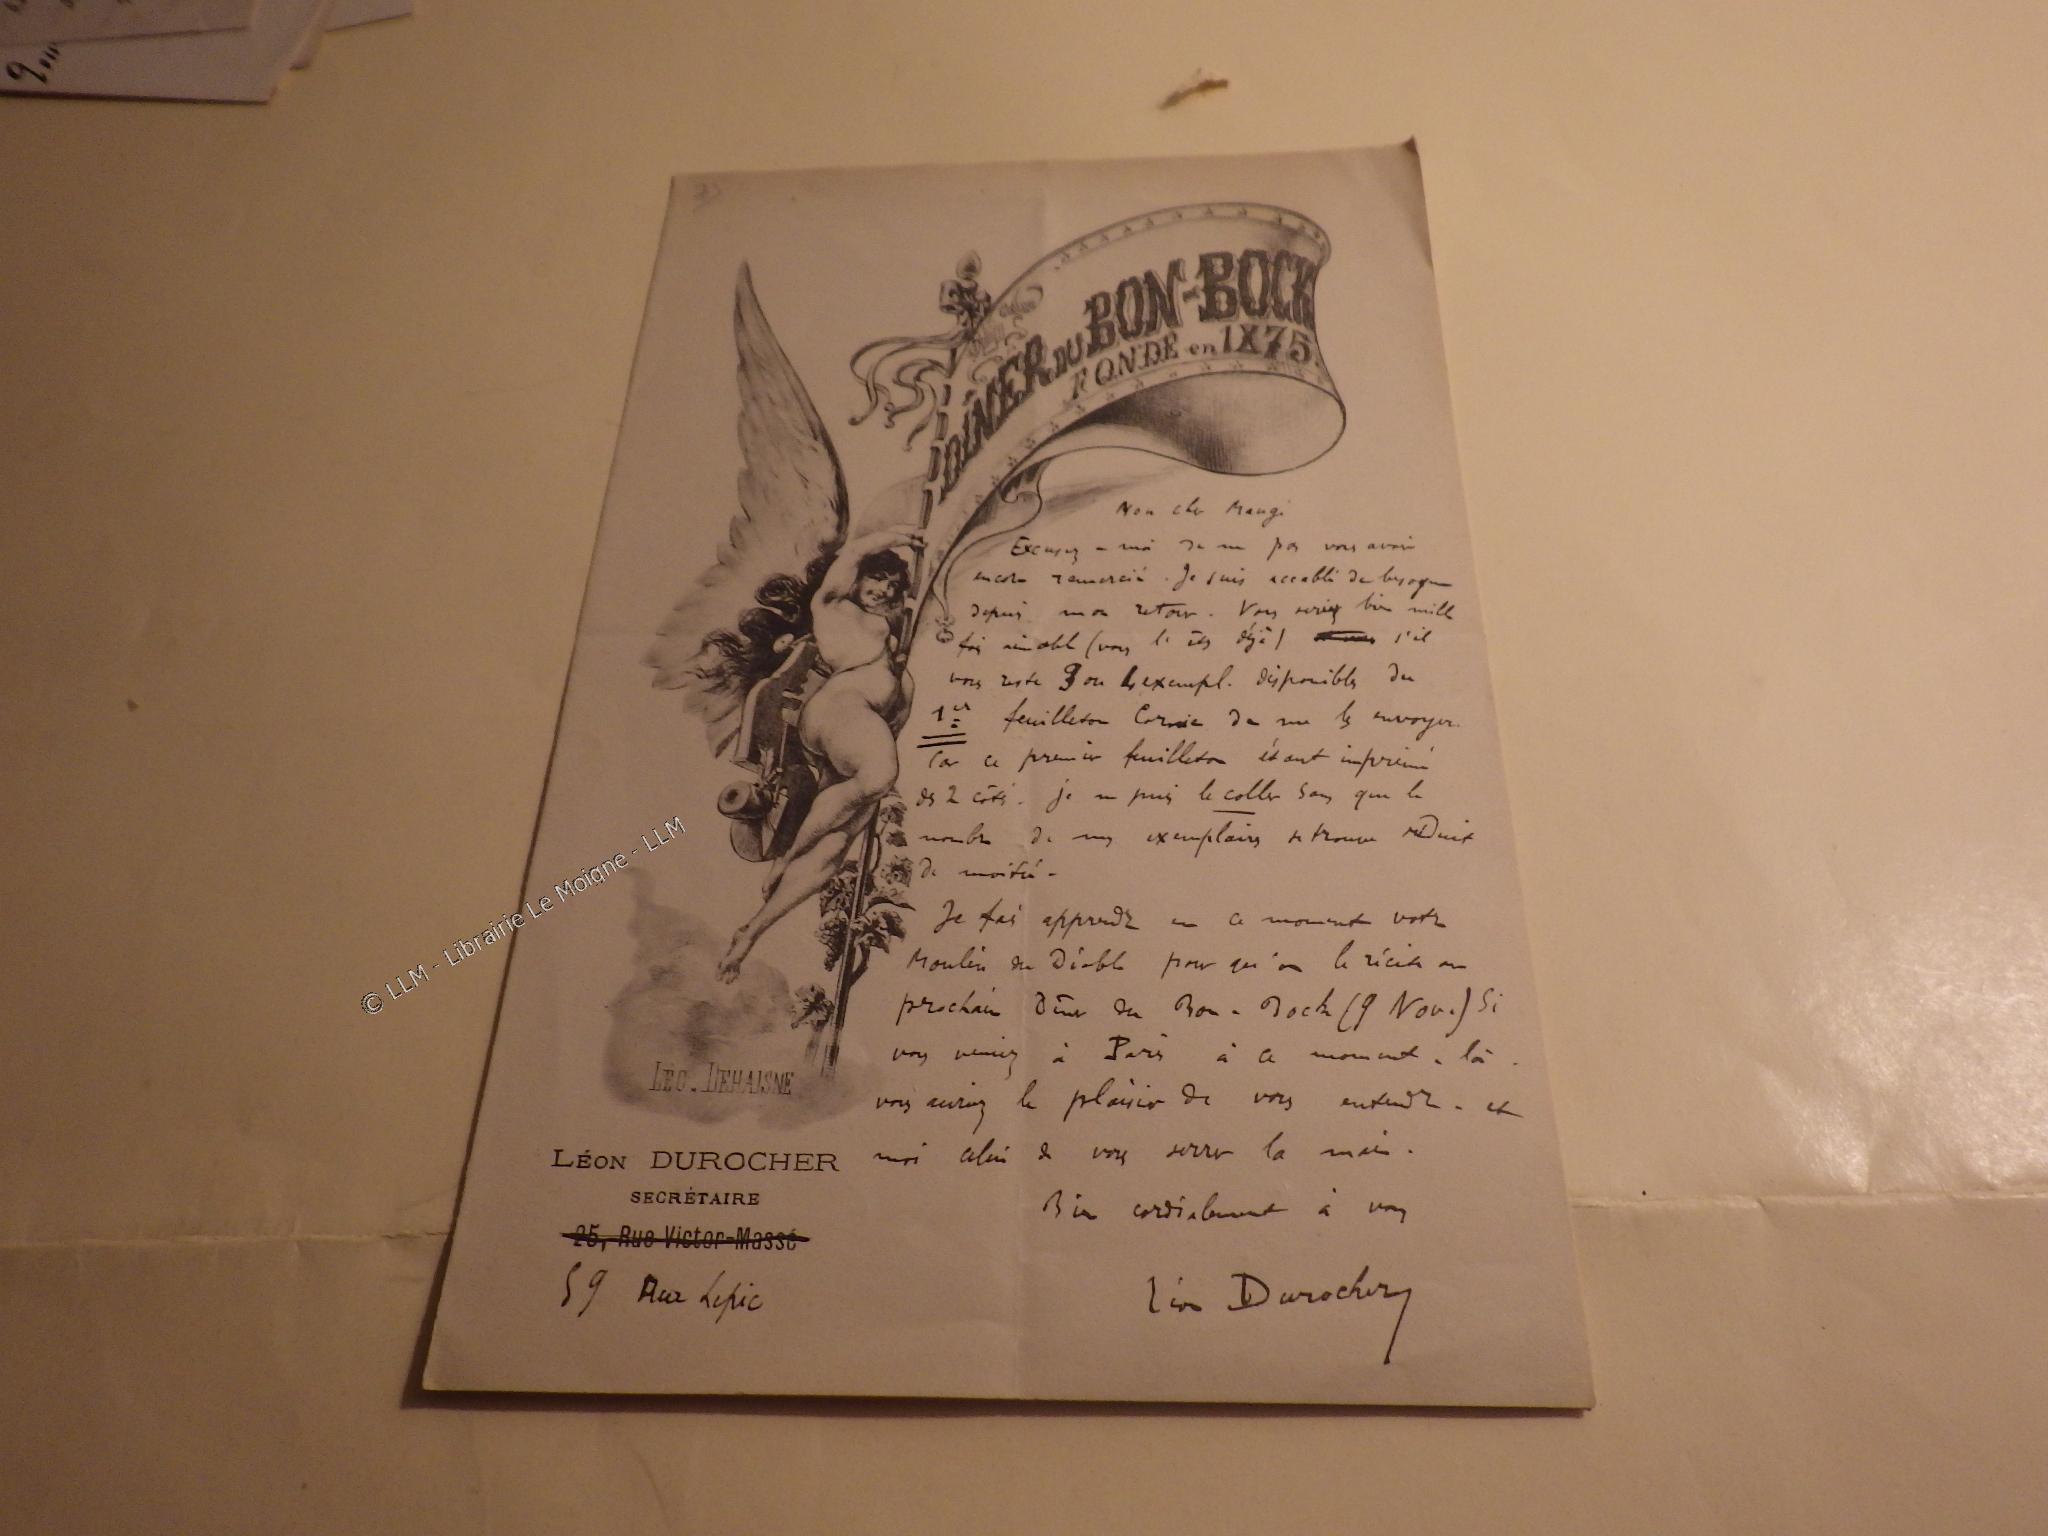 DÎNER DU BON-BOCK
FONDÉ en 1875.
Mon cher Maugi
Excusez-moi de ne pas vous avoir
encore remercié. Je suis accablé de besogne
depuis mon retour. Vous seriez bien mille
fois aimable (vous l'êtes déjà) s'il
vous reste 3 ou 4 exempl. disponibles du
1er feuilleton de me les envoyer.
Car ce premier feuilleton étant imprimé
des 2 côtés. je ne puis le coller sans que le
nombre de mes exemplaires se trouve réduit
de moitié.
Je fais apprendre en ce moment votre
Moulin du Diable pour qu'on le récite au
prochain Dîner du Bon-Bock (9 Nov.) Si
vous veniez à Paris à ce moment-là.
vous auriez le plaisir de vous entendre. et
moi celui de vous serrer la main.
Bien cordialement à vous
Léon Durocher
LÉO. DEHAISNE
LÉON DUROCHER
SECRÉTAIRE
25, Rue Victor-Massé
59 Rue Lepic
© LLM - Librairie Le Moigne - LLM